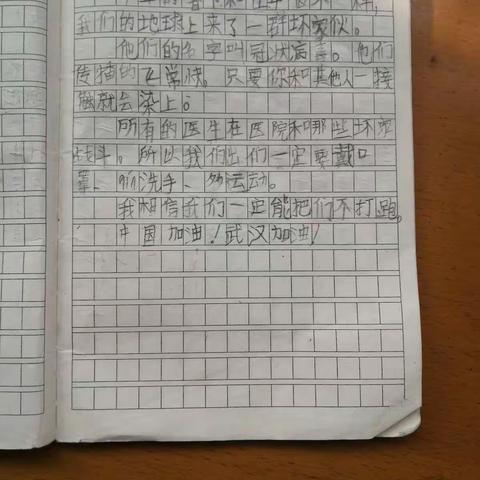 我们的地球上来了一群坏家伙。
他们的名字叫冠状病毒。他们
传播的飞常快。只要你和其他人一接
触就会染上。
所有的医生在医院和那些坏家
战斗。所以我们出们一定要戴口
罩、勤洗手、多运动。
我相信我们一定能把们不打跑。
中国加油！武汉加油！